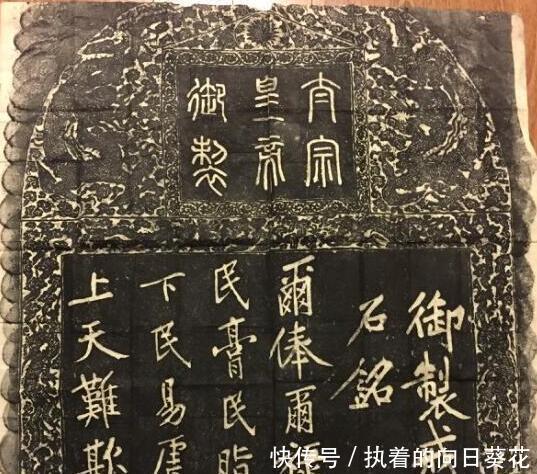 太宗
皇帝
御製
御製戒
石銘
爾俸爾
民膏民脂
下民易虐
上天難欺
快传号 / 执着的向日葵花